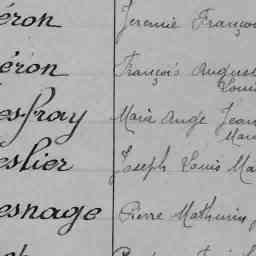 éron Jeremie Françoi
éron François August
Louis
esfray Marie Ange Jean
Mari
eslier Joseph Louis Ma
esnage Pierre Mathurin